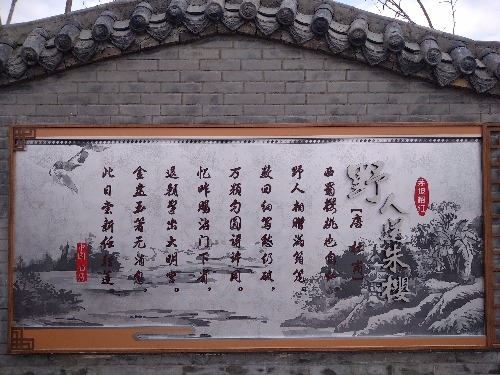 野人送朱櫻
【唐 杜甫】
西蜀櫻桃也自红
野人相赠满筠笼
数回细写愁仍破，
万颗匀圆讶许同。
忆昨赐沾门下省，
退朝擎出大明宫。
金盘玉箸无消息，
此日尝新任转蓬